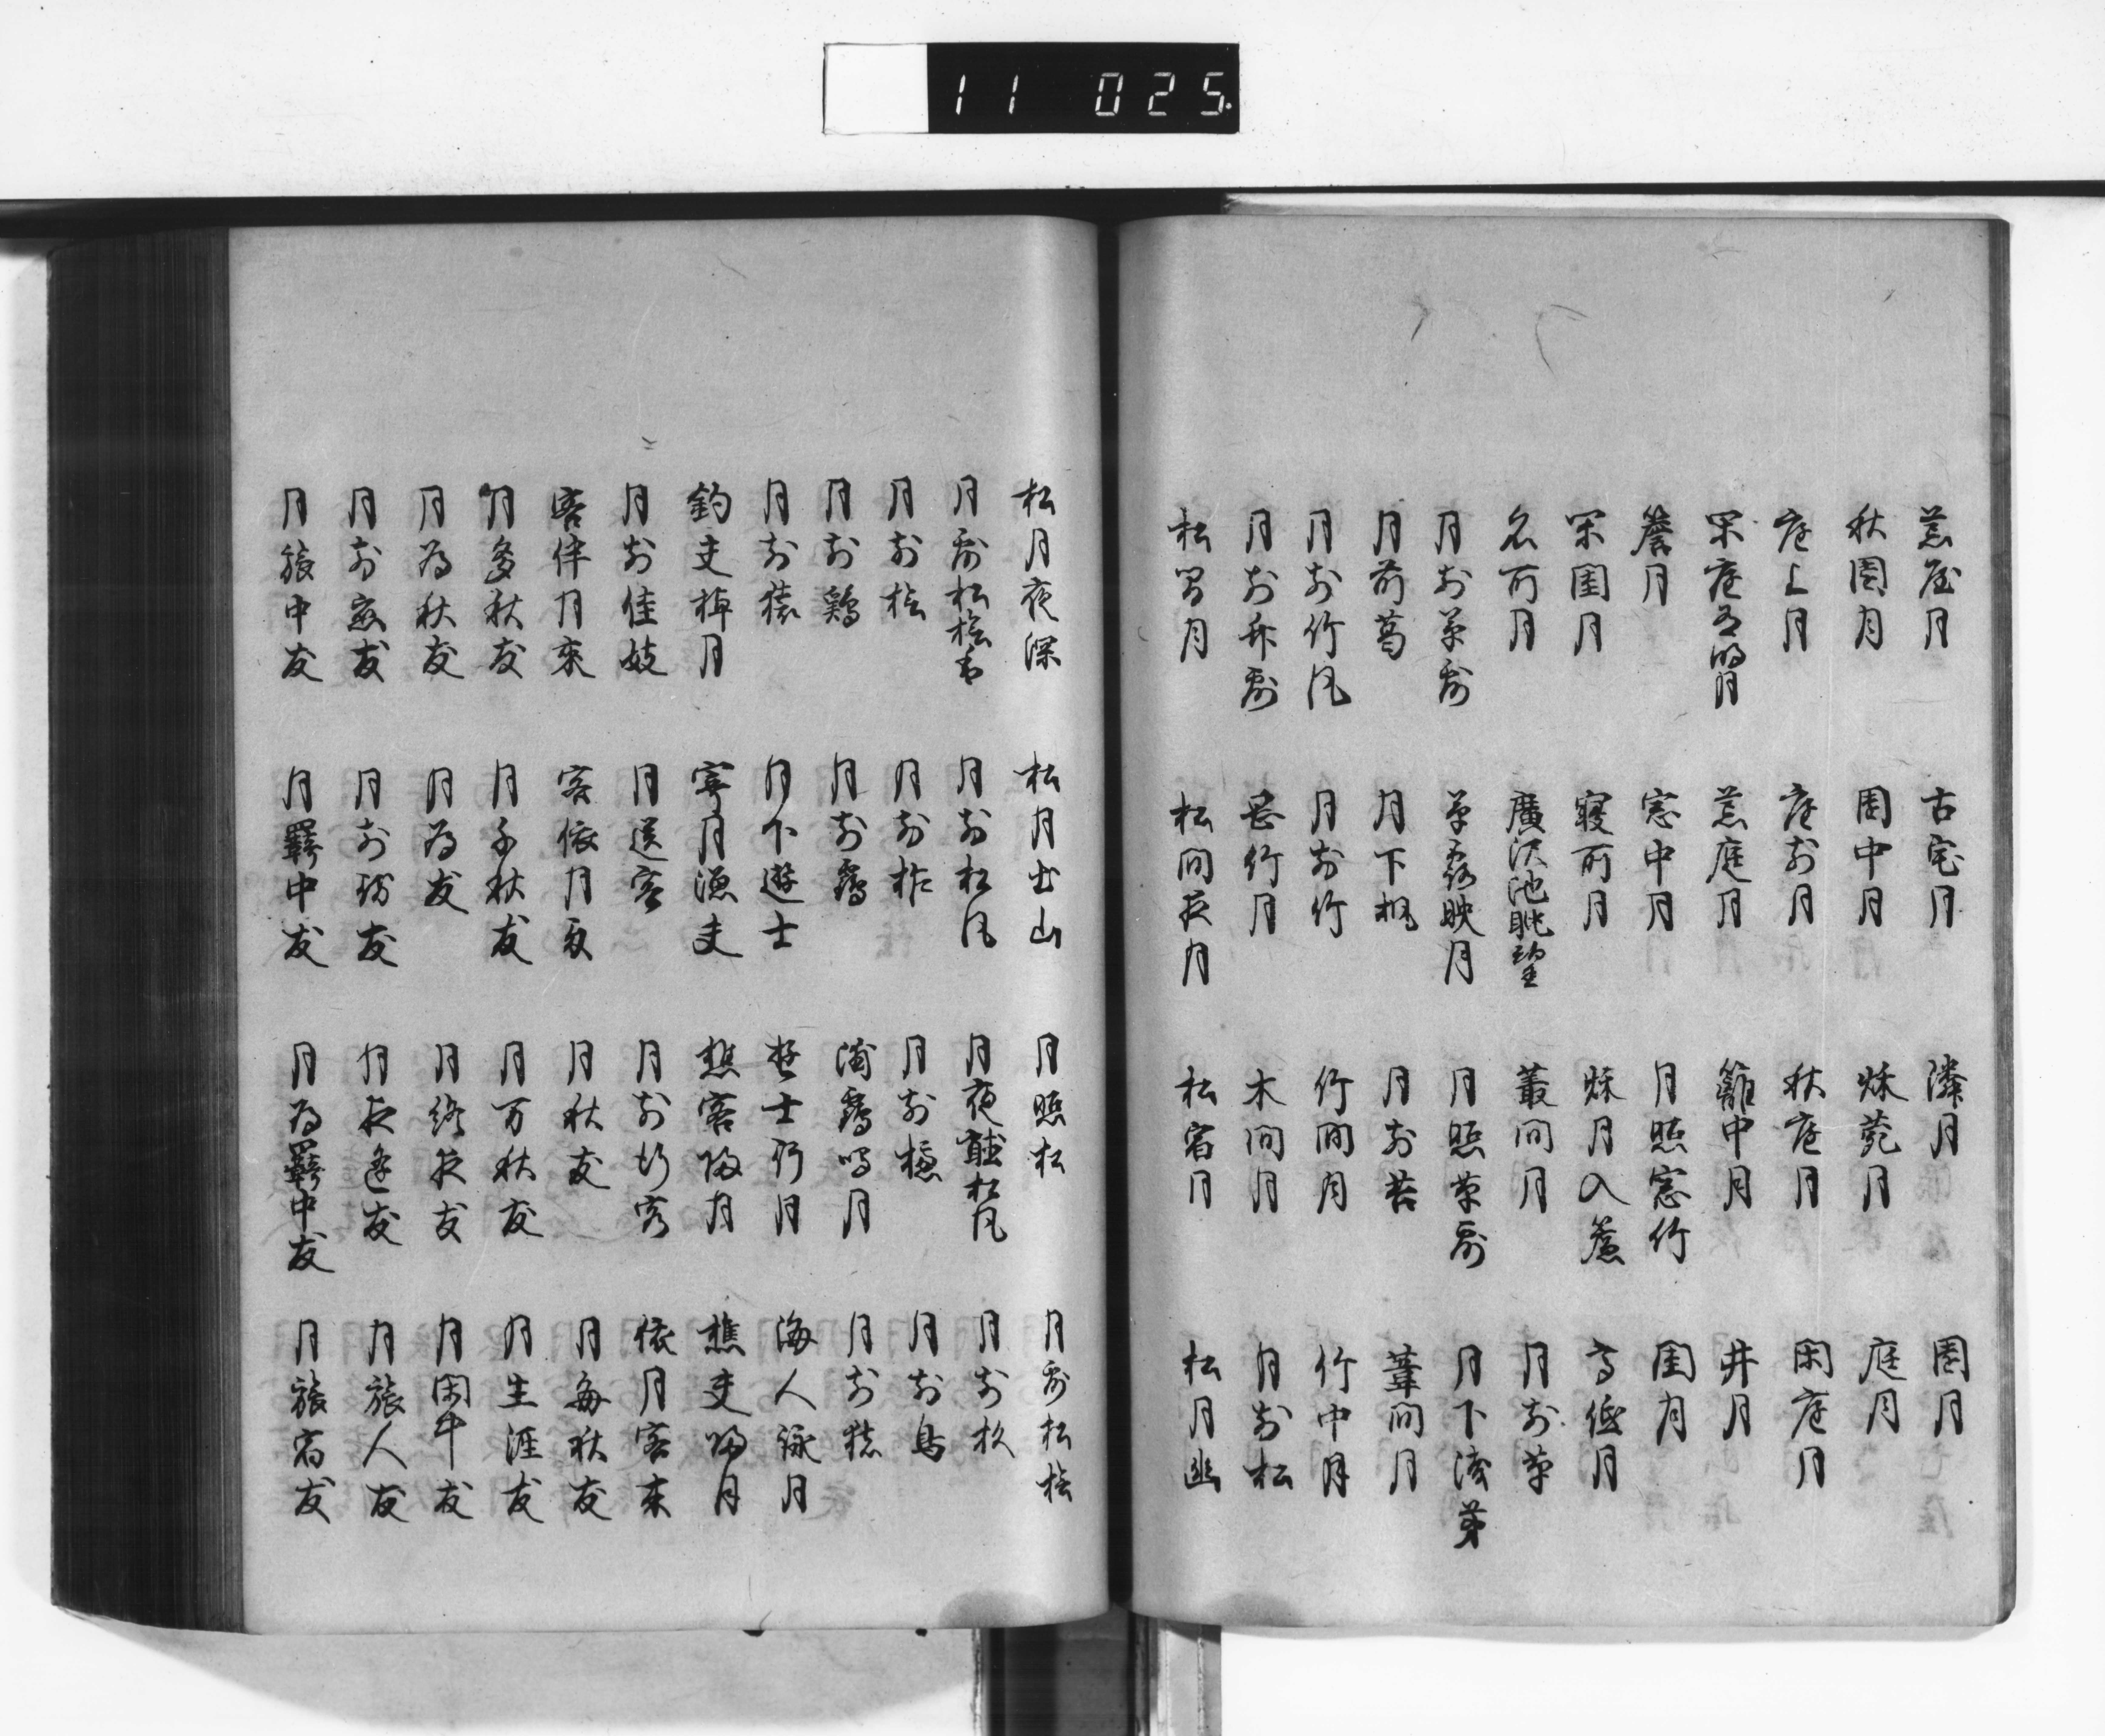 11 025
荒屋月 古宅月 隣月 園月
秋園月 園中月 秋苑月 庭月
庭上月 庭前月 秋庭月 閑庭月
閑庭夏明月 荒庭月 籬中月 井月
簷月 窓中月 月照窓竹 閨月
閑閨月 寝所月 秋月入簾 高低月
名所月 廣沢池眺望 叢間月 月前草
月前草露 草露映月 月照草露 月下浅茅
月前葛 月下楓 月前苔 葦間月
月前竹風 月前竹 竹間月 竹中月
月前竹露 竹月 木間月 月前松
松間月 松間夜月 松宿月 松月幽
松月夜深 松月出山 月照松 月前松桧
月前松桧 月前松風 月夜聴松風 月前杉
月前桧 月前柞 月前檍 月前鳥
月前鶏 月前鶴 浦鶴鳴月 月前猿
月前猿 月下遊士 遊士行月 海人詠月
釣叟棹月 宰月漁叟 樵客帰月 樵叟帰月
月前佳妓 月送客 月前行客 依月客来
客伴月来 客依月至 月秋友 月毎秋友
月多秋友 月千秋友 月万秋友 月生涯友
月為秋友 月為友 月終夜友 月閑中友
月前旧友 月前待友 月夜逢友 月旅人友
月旅中友 月羇中友 月為羇中友 月旅宿友